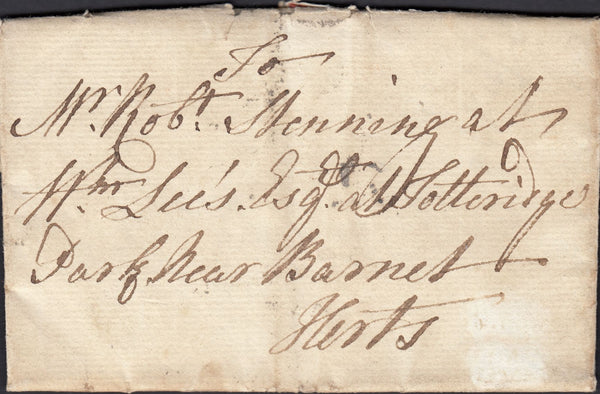 To
Mr. Robt. Stenning at
Wm Lee's. Esqr. at Totteridge
Park Near Barnet
Herts